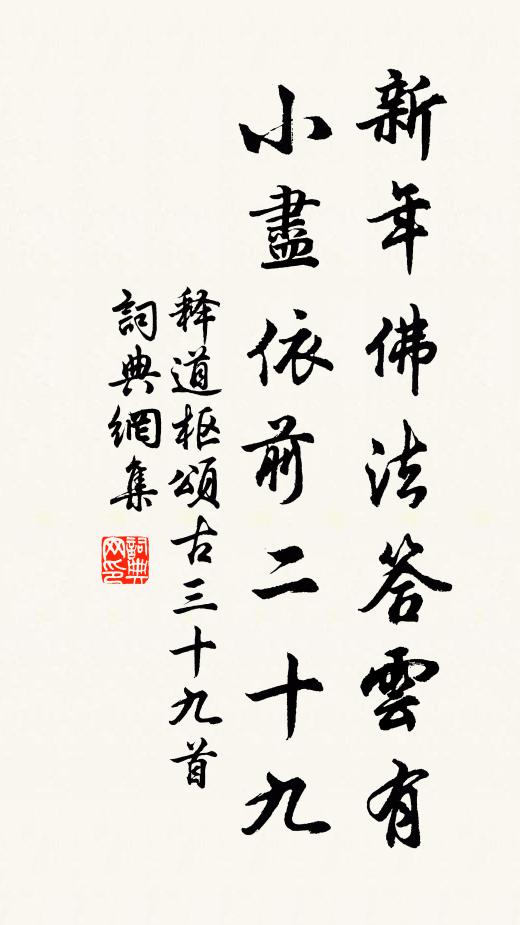 新年佛法答雲有
小盡依前二十九
释道枢頌古三十九首
詞典網集
詞典网印